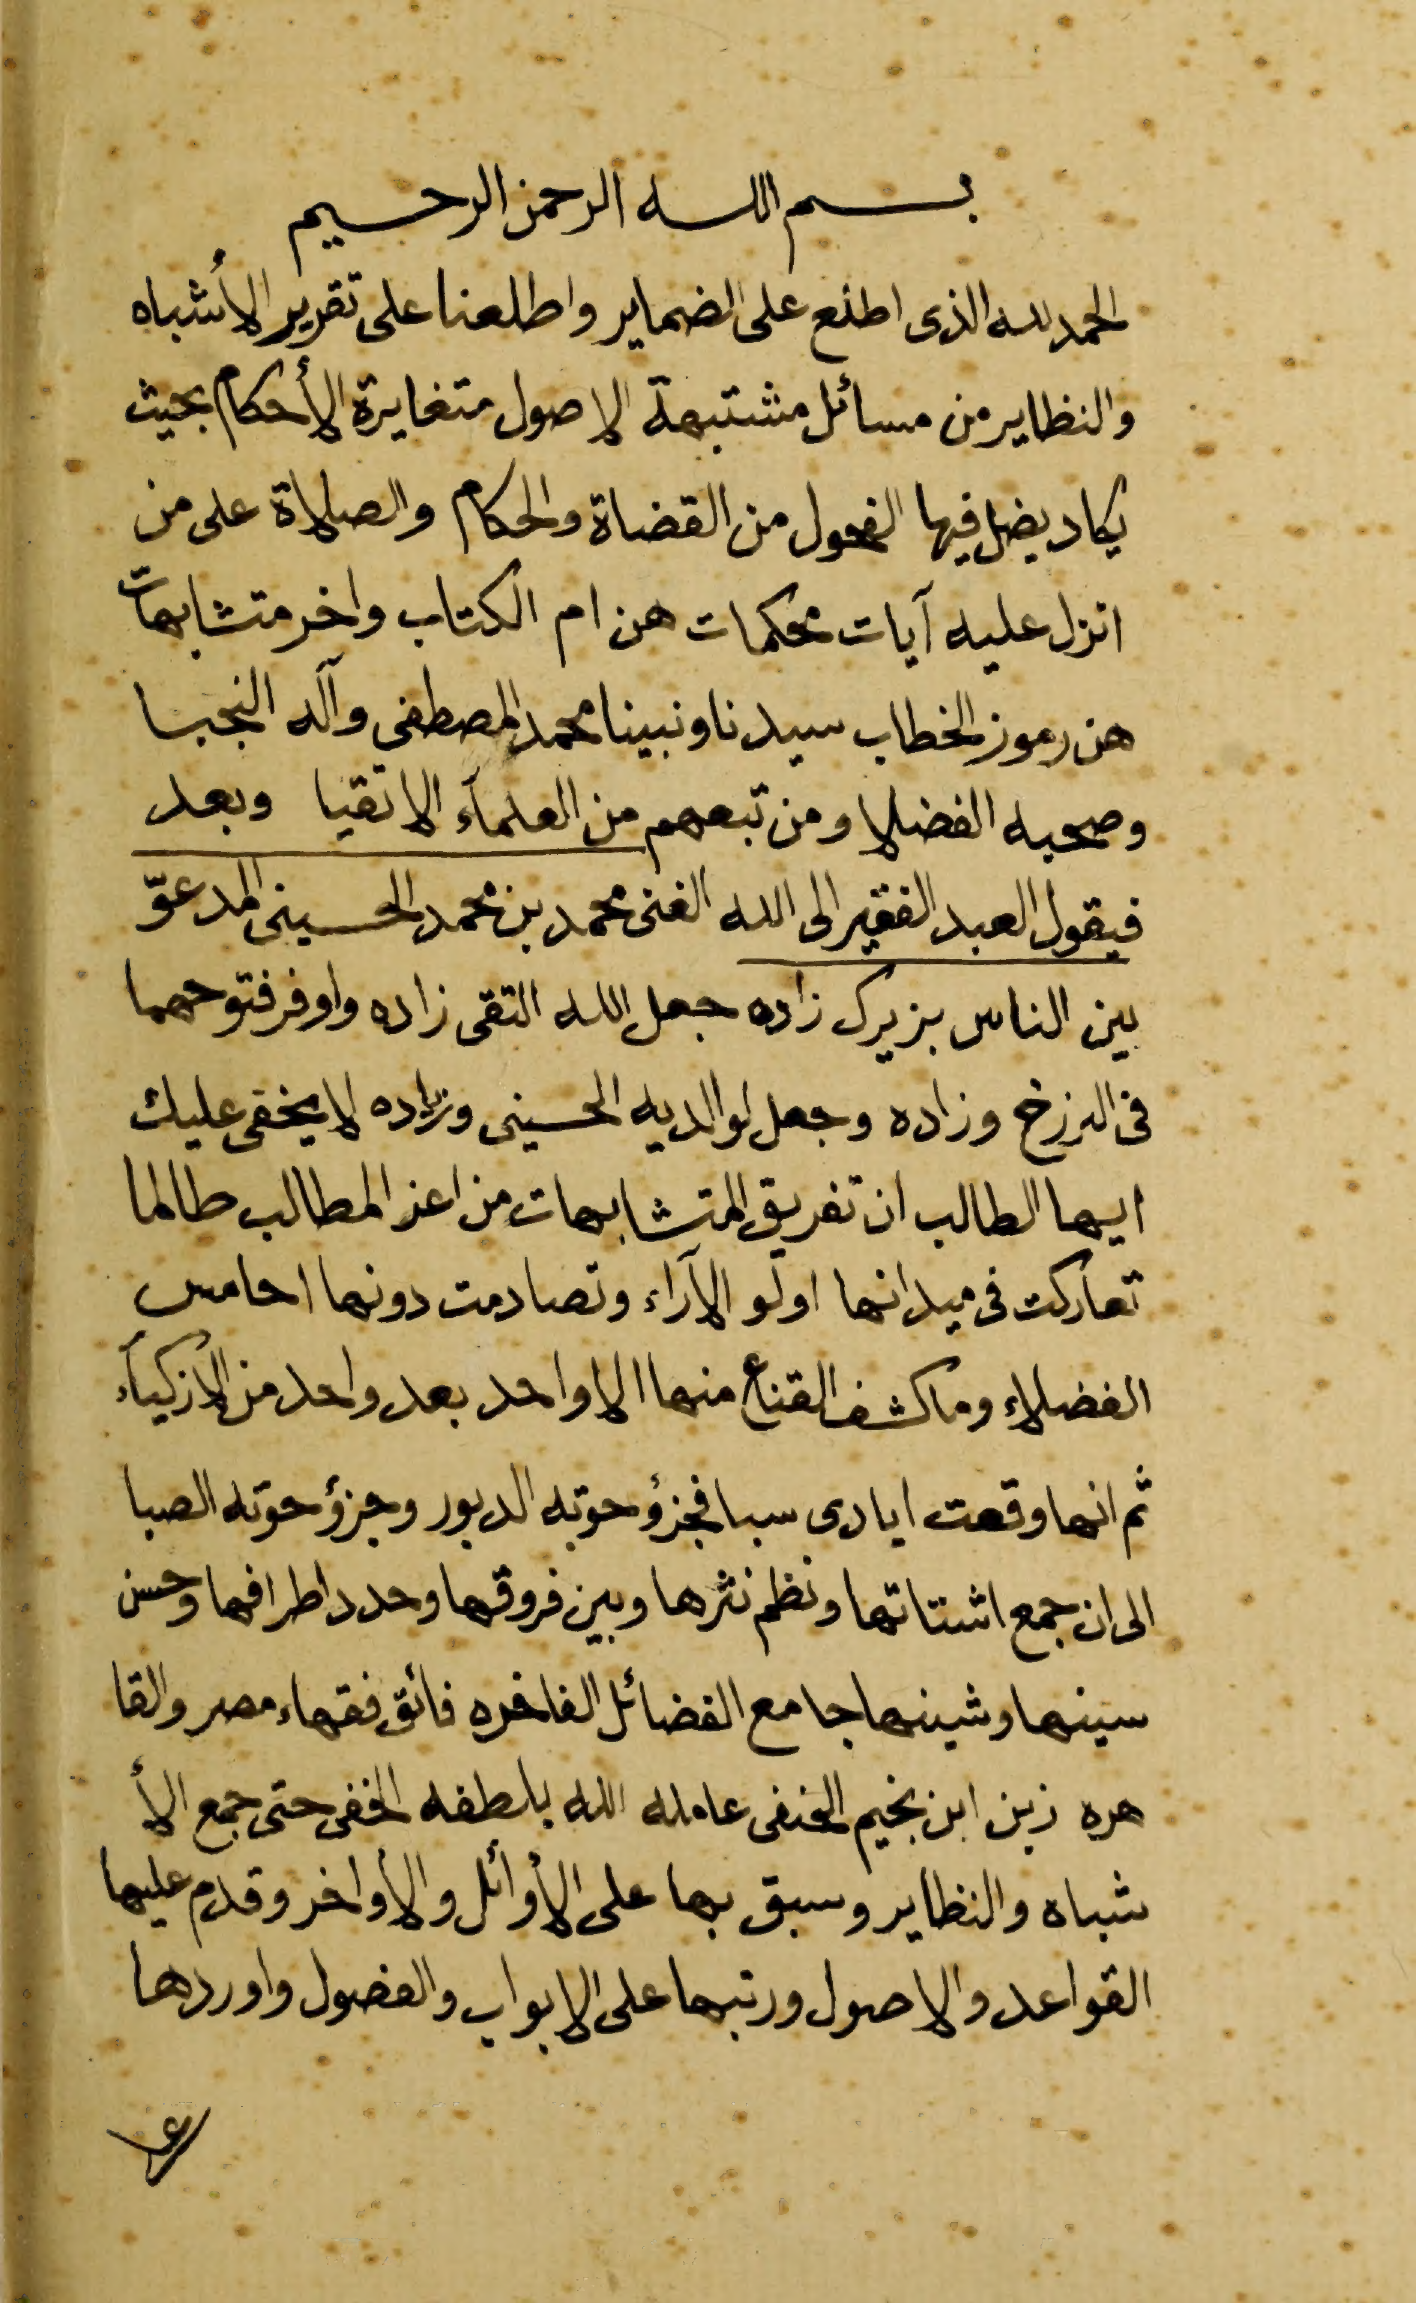 بسم الله الرحمن الرحيم
الحمد لله الذى اطلع على الضماير واطلعنا على تقرير الأشباه
والنظاير من مسائل مشتبهة الاصول متغايرة الأحكام بحيث
يكاد يضل فيها الفحول من القضاة والحكام والصلاة على من
انزل عليه آيات محكمات هن ام الكتاب واخر متشابهات
هن رموز الخطاب سيدنا ونبينا محمد المصطفى وآله النجبا
وصحبه الفضلا ومن تبعهم من العلمآء الاتقيا وبعد
فيقول العبد الفقير الى الله الغنى محمد بن محمد الحسينى المدعوّ
بين الناس بزيرك زاده جعل الله التقى زاده واوفر فتوحهما
فى البرزخ وزاده وجعل لوالديه الحسينى وزياده لا يخفى عليك
ايها الطالب ان تفريق المتشابهات من اعز المطالب طالما
تعاركت فى ميدانها اولو الآراء وتصادمت دونها احامس
الفضلاء وما كشف القناع منها الا واحد بعد واحد من الأزكيآء
ثم انها وقعت ايادى سبا فجزؤ حوته الدبور وجزؤ حوته الصبا
الى ان جمع اشتاتها ونظم نثرها وبين فروقها وحدد اطرافها وحسن
سينها وشينها جامع الفضائل الفاخره فائق فقهاء مصر والقا
هره زين ابن نجيم الحنفى عامله الله بلطفه الخفى حتى جمع الأ
شباه والنظاير وسبق بها على الأوائل والأواخر وقدم عليها
القواعد والاصول ورتبها على الابواب والفصول واوردها